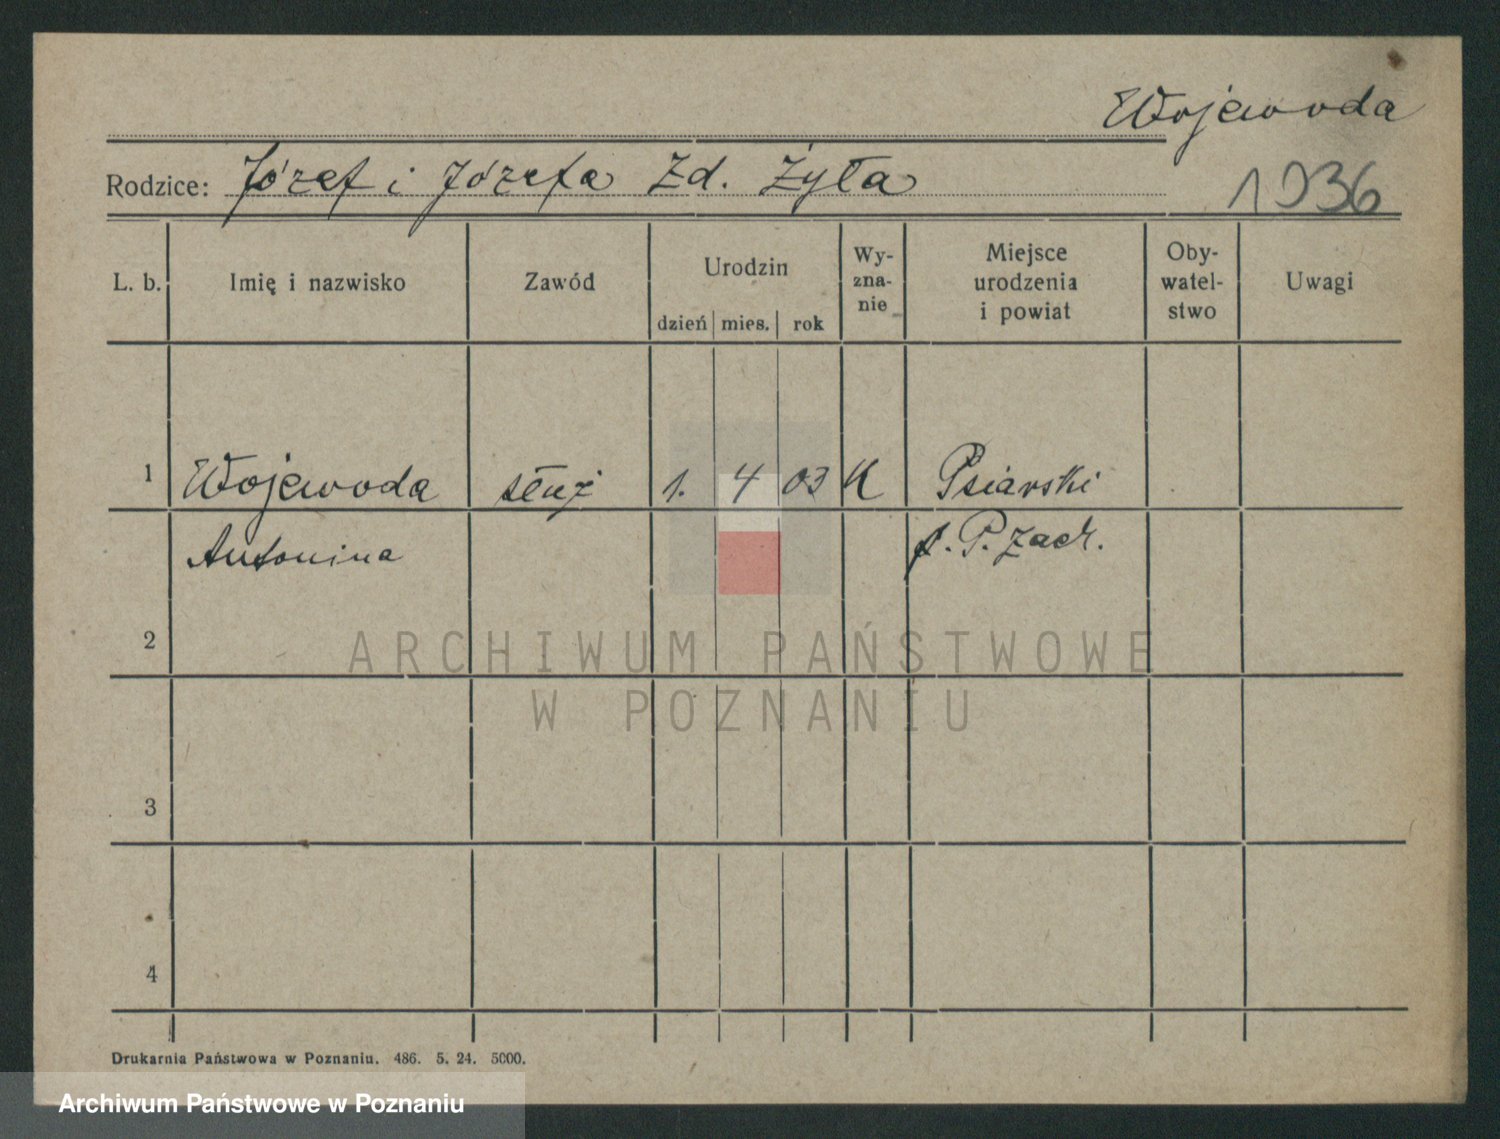 Wojewoda
Rodzice: Józef i Józefa Zd. Żyła
1936
L. b. Imię i nazwisko Zawód Urodzin dzień mies. rok Wy-zna-nie Miejsce urodzenia i powiat Oby-watel-stwo Uwagi
1 Wojewoda służ 1. 4 03 K Psiarski
Antonina p. P. zach.
2
ARCHIWUM PAŃSTWOWE
W POZNANIU
3
4
Drukarnia Państwowa w Poznaniu. 486. 5. 24. 5000.
Archiwum Państwowe w Poznaniu